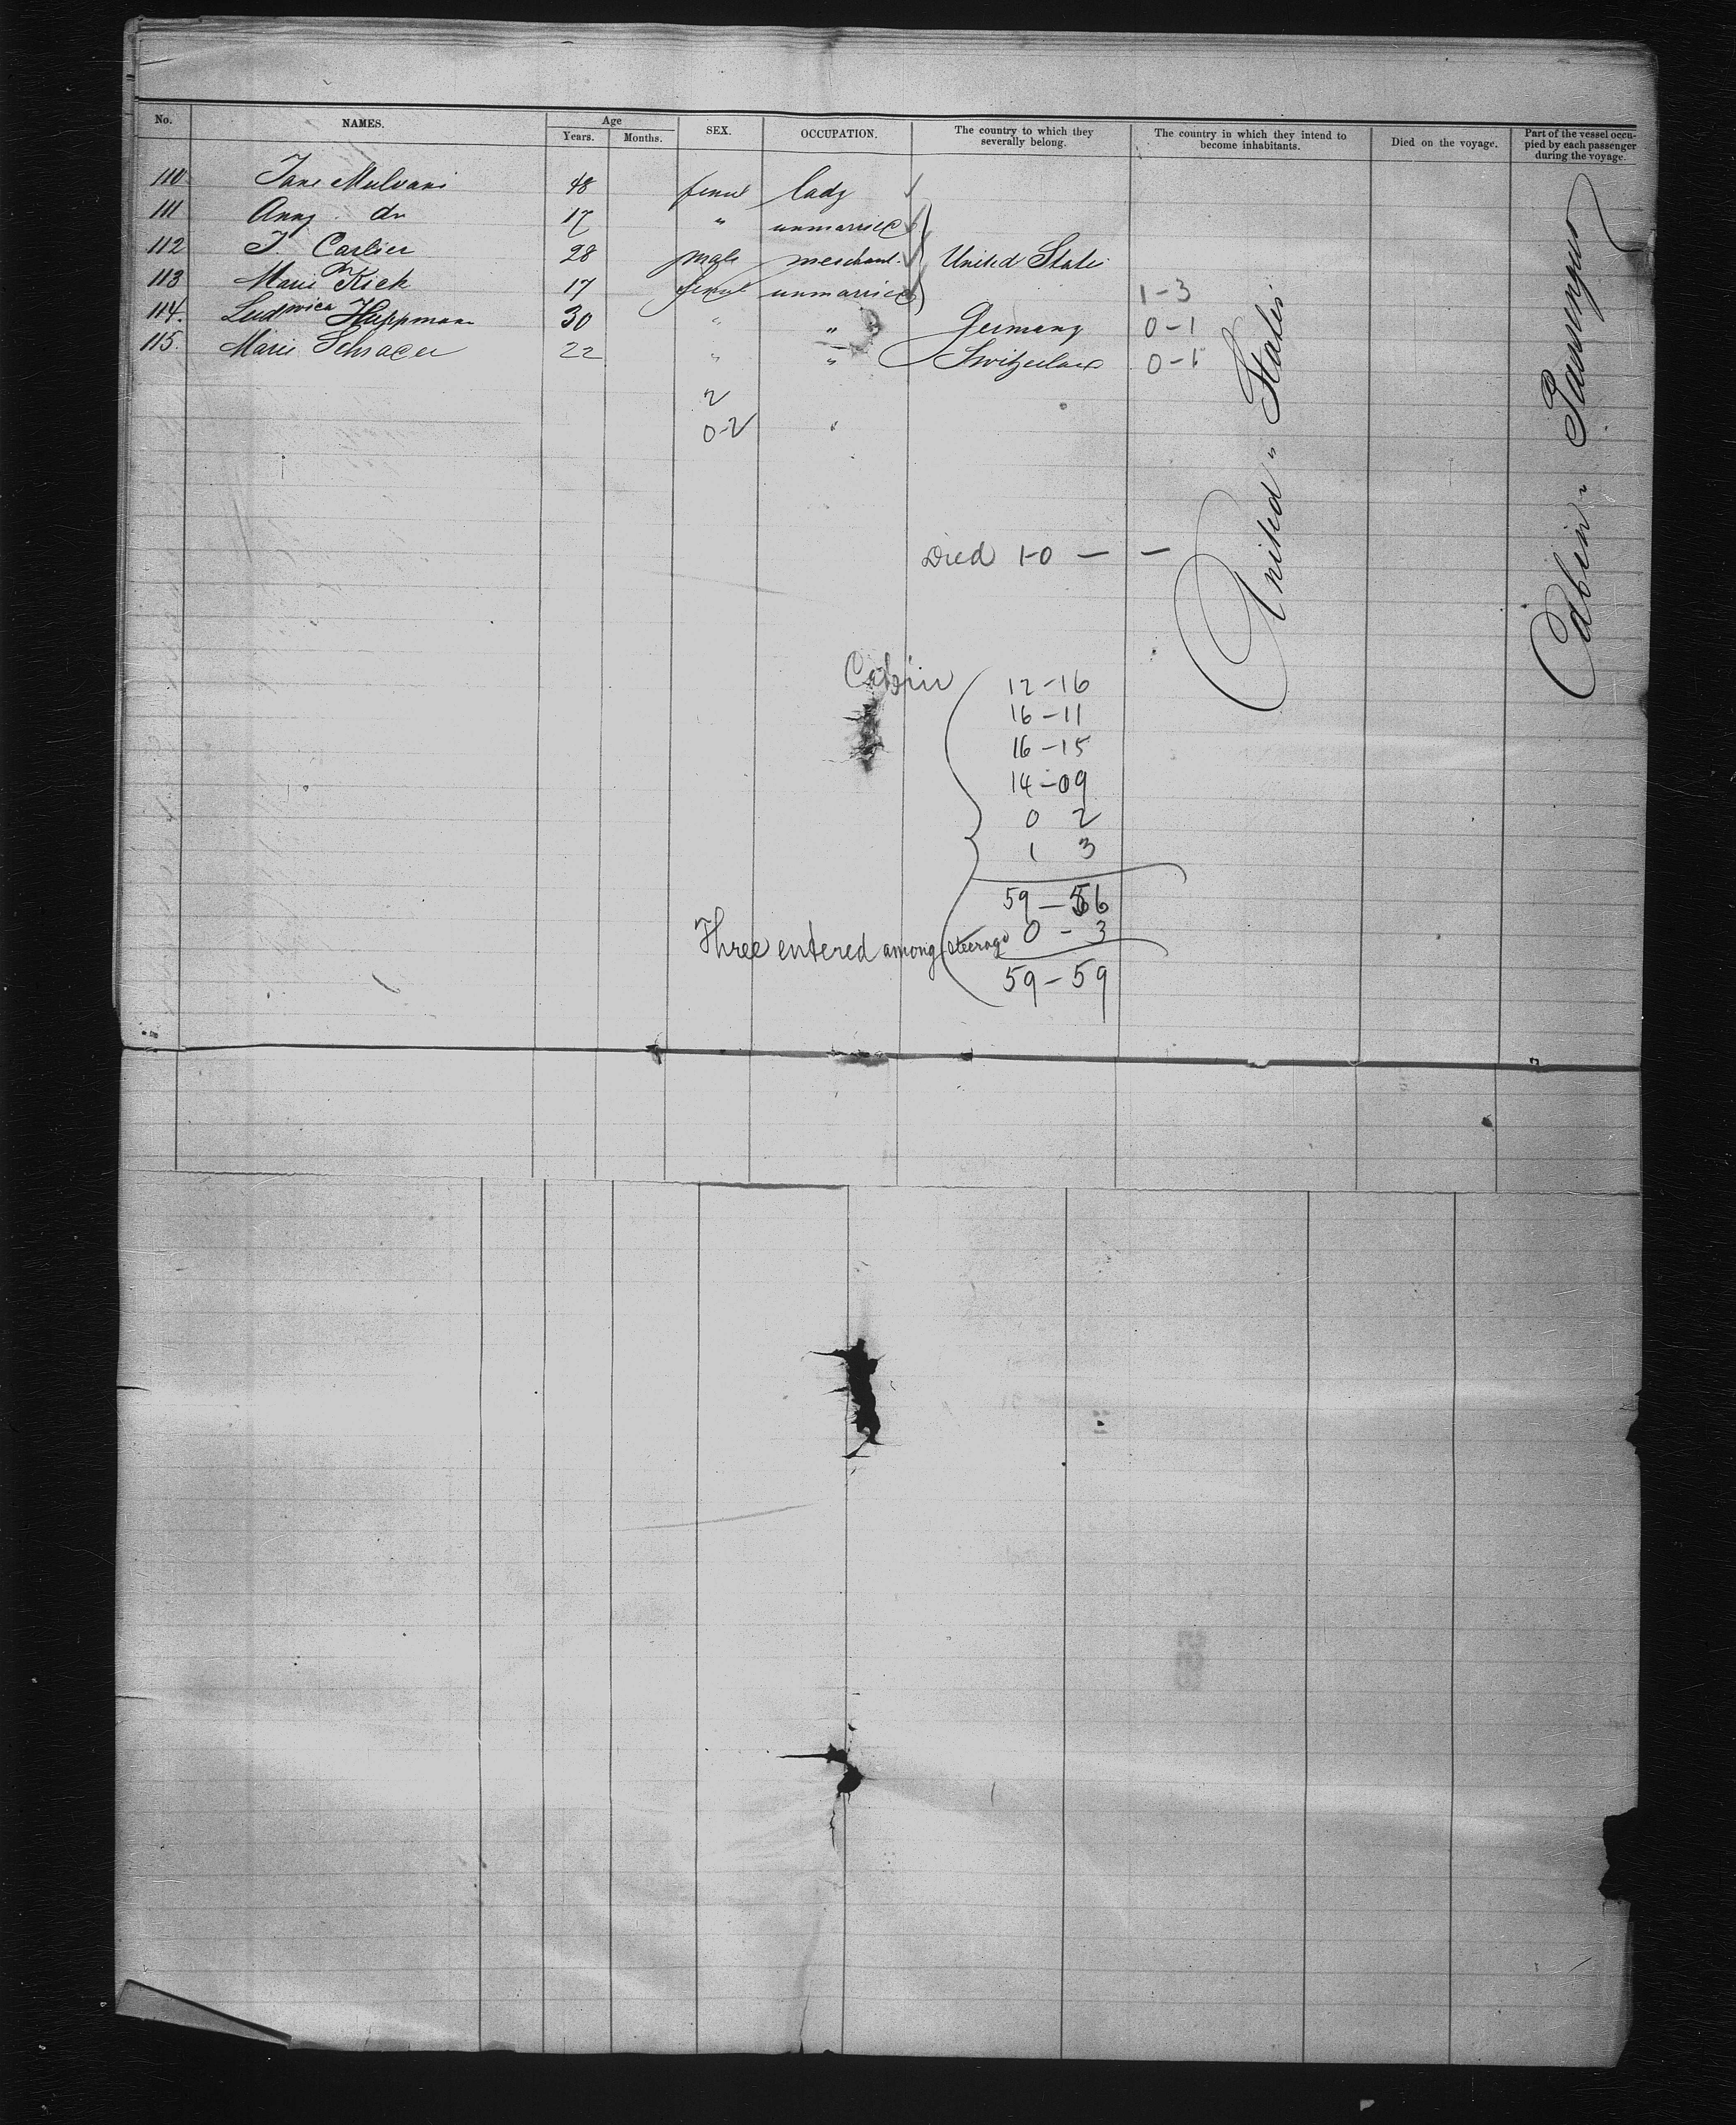 No. NAMES. Age Years. Months. SEX. OCCUPATION. The country to which they severally belong. The country in which they intend to become inhabitants. Died on the voyage. Part of the vessel occupied by each passenger during the voyage.
110 Jane Mulvani 48 femal lady
111 Anny do 17 " unmarried
112 J. Carlier 28 male merchant. United States
113 Marie Kiek 17 femal unmarried 1-3
114. Ludwica Huppmann 30 " " Germany 0-1
115. Marie 22 " " Switzerland 0-1
2
0-2 "
United " States
Cabin " Passengers
Died 1-0 — —
Cabin 12-16
16-11
16-15
14-09
0 2
1 3
59-56
Three entered among steerage 0-3
59-59